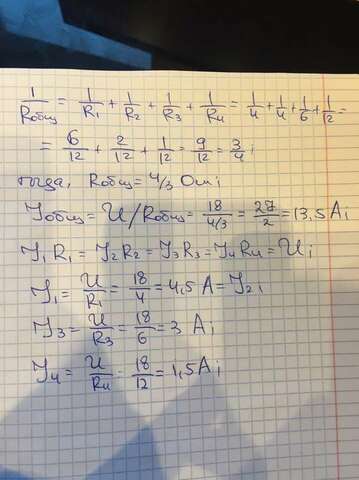 1/Rобщ = 1/R1 + 1/R2 + 1/R3 + 1/R4 = 1/4 + 1/4 + 1/6 + 1/12 =
= 6/12 + 2/12 + 1/12 = 9/12 = 3/4;
тогда, Rобщ = 4/3 Ом;
Jобщ = U/Rобщ = 18/(4/3) = 27/2 = 13,5 А;
J1 R1 = J2 R2 = J3 R3 = J4 R4 = U;
J1 = U/R1 = 18/4 = 4,5 А = J2;
J3 = U/R3 = 18/6 = 3 А;
J4 = U/R4 = 18/12 = 1,5 А;